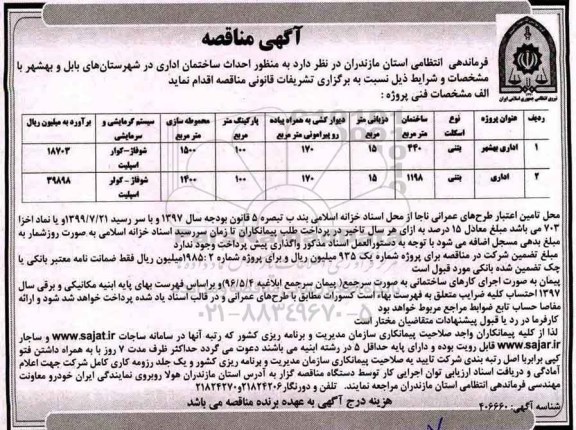 آگهی مناقصه
فرماندهی انتظامی استان مازندران در نظر دارد به منظور احداث ساختمان اداری در شهرستان‌های بابل و بهشهر با
مشخصات و شرایط ذیل نسبت به برگزاری تشریفات قانونی مناقصه اقدام نماید
الف مشخصات فنی پروژه :
نیروی انتظامی جمهوری اسلامی ایران
ردیف عنوان پروژه نوع اسکلت ساختمان متر مربع دژبانی متر مربع دیوار کشی به همراه پیاده رو پیرامونی متر مربع پارکینگ متر مربع محوطه سازی متر مربع سیستم گرمایشی و سرمایشی برآورد به میلیون ریال
۱ اداری بهشهر بتنی ۴۴۰ ۱۵ ۱۷۰ ۱۰۰ ۱۵۰۰ شوفاژ-کولر اسپلیت ۱۸۷۰۳
۲ اداری بتنی ۱۱۹۸ ۱۵ ۱۷۰ ۱۰۰ ۱۴۰۰ شوفاژ - کولر اسپلیت ۳۹۸۹۸
محل تامین اعتبار طرح‌های عمرانی ناجا از محل اسناد خزانه اسلامی بند ب تبصره ۵ قانون بودجه سال ۱۳۹۷ و با سر رسید ۱۳۹۹/۷/۲۱ و یا نماد اخزا
۷۰۳ می باشد مبلغ معادل ۱۵ درصد به ازای هر سال تاخیر در پرداخت طلب پیمانکاران تا زمان سررسید اسناد خزانه اسلامی به صورت روزشمار به
مبلغ بدهی مسجل اضافه می شود با توجه به دستورالعمل اسناد مذکور واگذاری پیش پرداخت وجود ندارد
مبلغ تضمین شرکت در مناقصه برای پروژه شماره یک ۹۳۵ میلیون ریال و برای پروژه شماره ۲ :۱۹۸۵میلیون ریال فقط ضمانت نامه معتبر بانکی یا
چک تضمین شده بانکی مورد قبول است
پیمان به صورت اجرای کارهای ساختمانی به صورت سرجمع( پیمان سرجمع ابلاغیه ۹۶/۵/۴) و براساس فهرست بهای پایه ابنیه مکانیکی و برقی سال
۱۳۹۷ احتساب کلیه ضرایب متعلق به فهرست بهاء است کسورات مطابق با طرح‌های عمرانی و در قالب اسناد یاد شده پرداخت خواهد شد شود و ارائه
مفاصا حساب تابع ضوابط مراجع مربوط خواهد بود
کارفرما در رد یا قبول پیشنهادات متقاضیان مختار است
لذا از کلیه پیمانکاران واجد صلاحیت پیمانکاری سازمان مدیریت و برنامه ریزی کشور که رتبه آنها در سامانه ساجات www.sajat.ir و ساجار
www.sajar.ir قابل رویت بوده و دارای پایه حداقل ۵ در رشته ابنیه می باشند دعوت می گردد حداکثر ظرف مدت ۷ روز با به همراه داشتن فتو
کپی برابربا اصل رتبه بندی شرکت تایید به صلاحیت پیمانکاری سازمان مدیریت و برنامه ریزی کشور و یک جلد رزومه کاری کامل شرکت جهت اعلام
آمادگی و دریافت اسناد ارزیابی توان اجرایی کار توسط دستگاه مناقصه گزار به آدرس استان مازندران هولا روبروی نمایندگی ایران خودرو معاونت
مهندسی فرماندهی انتظامی استان مازندران مراجعه نمایند. تلفن و دورنگار۲۱۸۲۴۲۰۶و۲۱۸۲۴۲۷۰
هزینه درج آگهی به عهده برنده مناقصه می باشد
شناسه آگهی: ۴۰۶۶۶۰
۰۲۱-۸۸۳۴۹۶۷۰-۵